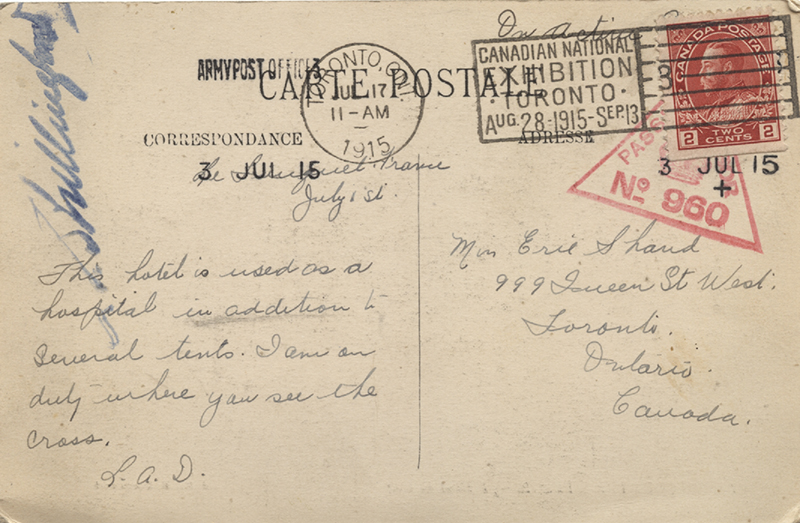 On Active
ARMY POST OFFICE
CARTE POSTALE
TORONTO, ONT.
JUL 17
11-AM
1915
CANADIAN NATIONAL
EXHIBITION
· TORONTO ·
AUG. 28-1915-SEP. 13
CANADA POSTAGE
2 TWO CENTS 2
CORRESPONDANCE
ADRESSE
3 JUL 15
3 JUL 15
+
PASSED
No 960
France
July 1st.
This hotel is used as a
hospital in addition to
several tents. I am on
duty where you see the
cross.
L. A. D.
Miss Eric Shand
999 Queen St West.
Toronto.
Ontario.
Canada.